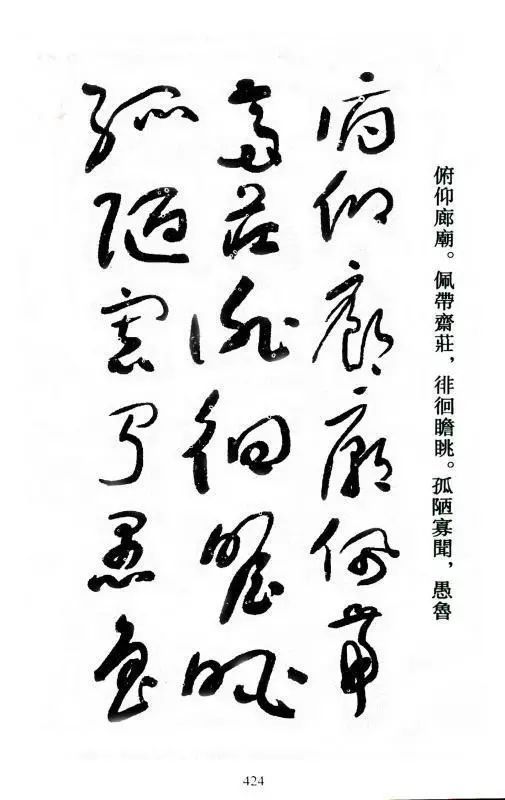 俯仰廊廟。佩帶齋莊，徘徊瞻眺。孤陋寡聞，愚魯
俯仰廊廟佩帶
齋莊徘徊瞻眺
孤陋寡聞愚魯
424